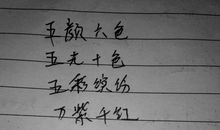 五颜六色
五光十色
五彩缤纷
万紫千红